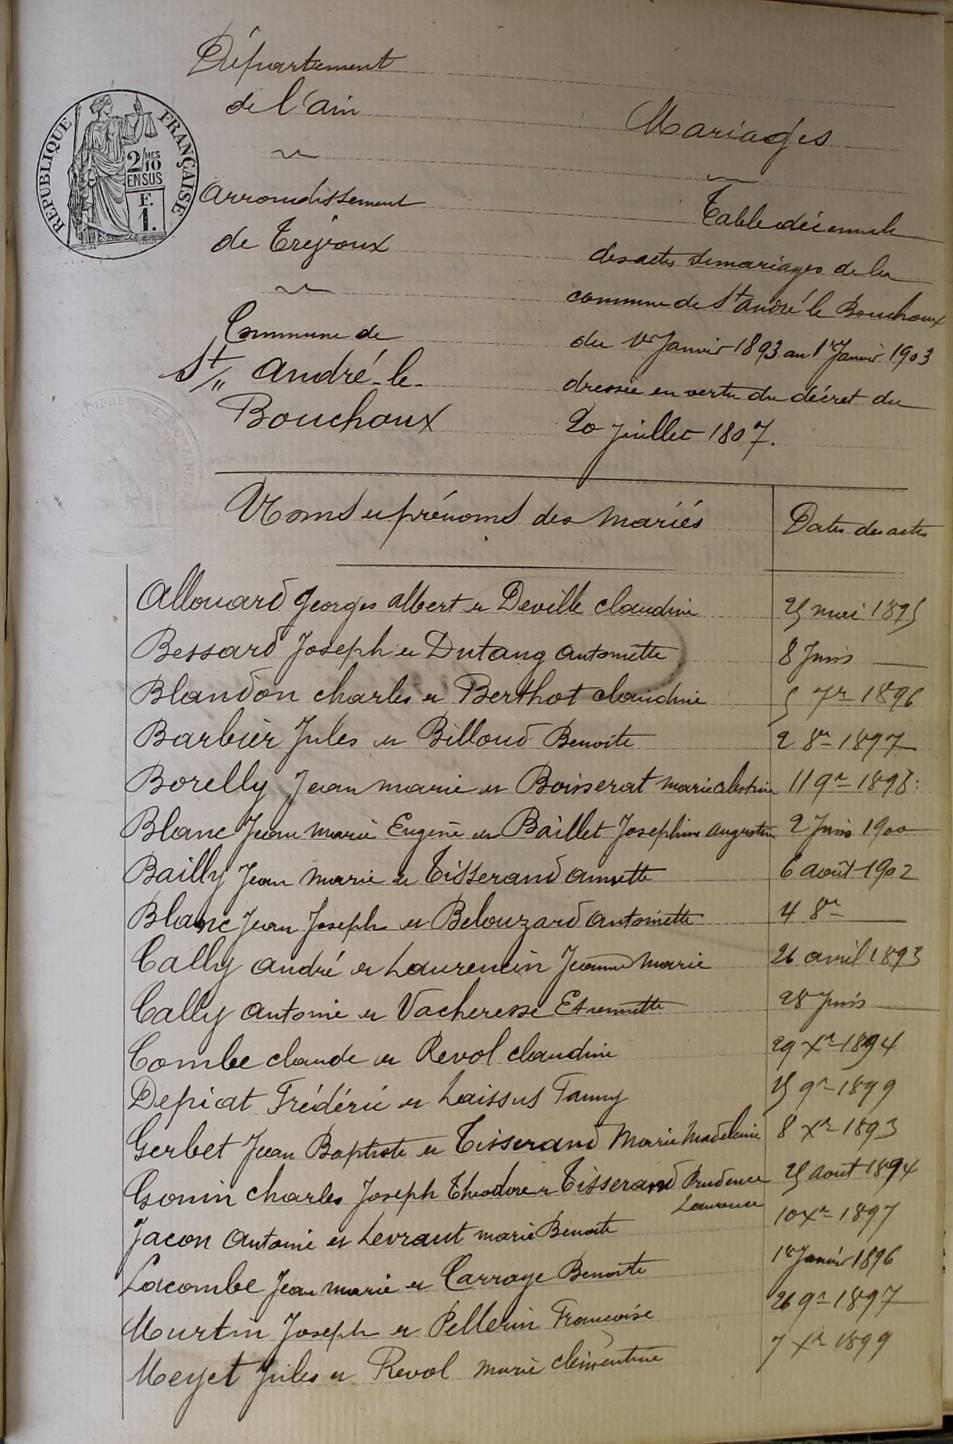 Département
de l'ain
Arrondissement
de Trévoux
Commune de
St André-le-
Bouchoux
RÉPUBLIQUE FRANÇAISE
2/10MES
EN SUS
F.
1.
Mariages
Table décennale
des actes de mariages de la
commune de St André le Bouchoux
du 1er Janvier 1893 au 1er Janvier 1903
dressée en vertu du décret du
20 Juillet 1807.
Noms et prénoms des mariés Dates des actes
Allouard Georges Albert et Deville claudine 25 mai 1895
Bessard Joseph et Dutang antoinette 8 Juin —
Blandon charles et Berthot claudine 5 7re 1896
Barbier Jules et Billoud Benoite 2 8re 1897
Borelly Jean marie et Boisserat marie 11 9re 1898
Blanc Jean Marie Eugène et Baillet Josephine augustine 2 Juin 1900
Bailly Jean Marie et Tisserand annette 6 août 1902
Blanc Jean Joseph et Belouzard antoinette 4 8re —
Cally andré et Laurencin Jeanne Marie 26 avril 1893
Cally antoine et Vacheresse Etiennette 28 Juin —
Combe claude et Revol claudine 29 Xre 1894
Depiat Frédéric et Laissus Fanny 25 9re 1899
Gerbet Jean Baptiste et Tisserand Marie Madeleine 8 Xre 1893
Gonin charles Joseph Théodore et Tisserand Prudence 25 aout 1894
Laurence
Jacon Antoine et Levraut marie Benoite 10 Xre 1897
Lacombe Jean marie et Carraye Benoite 1er Janvier 1896
Murtin Joseph et Pellerin Francoise 26 9re 1897
Meyet Jules et Revol marie clémentine 7 Xre 1899